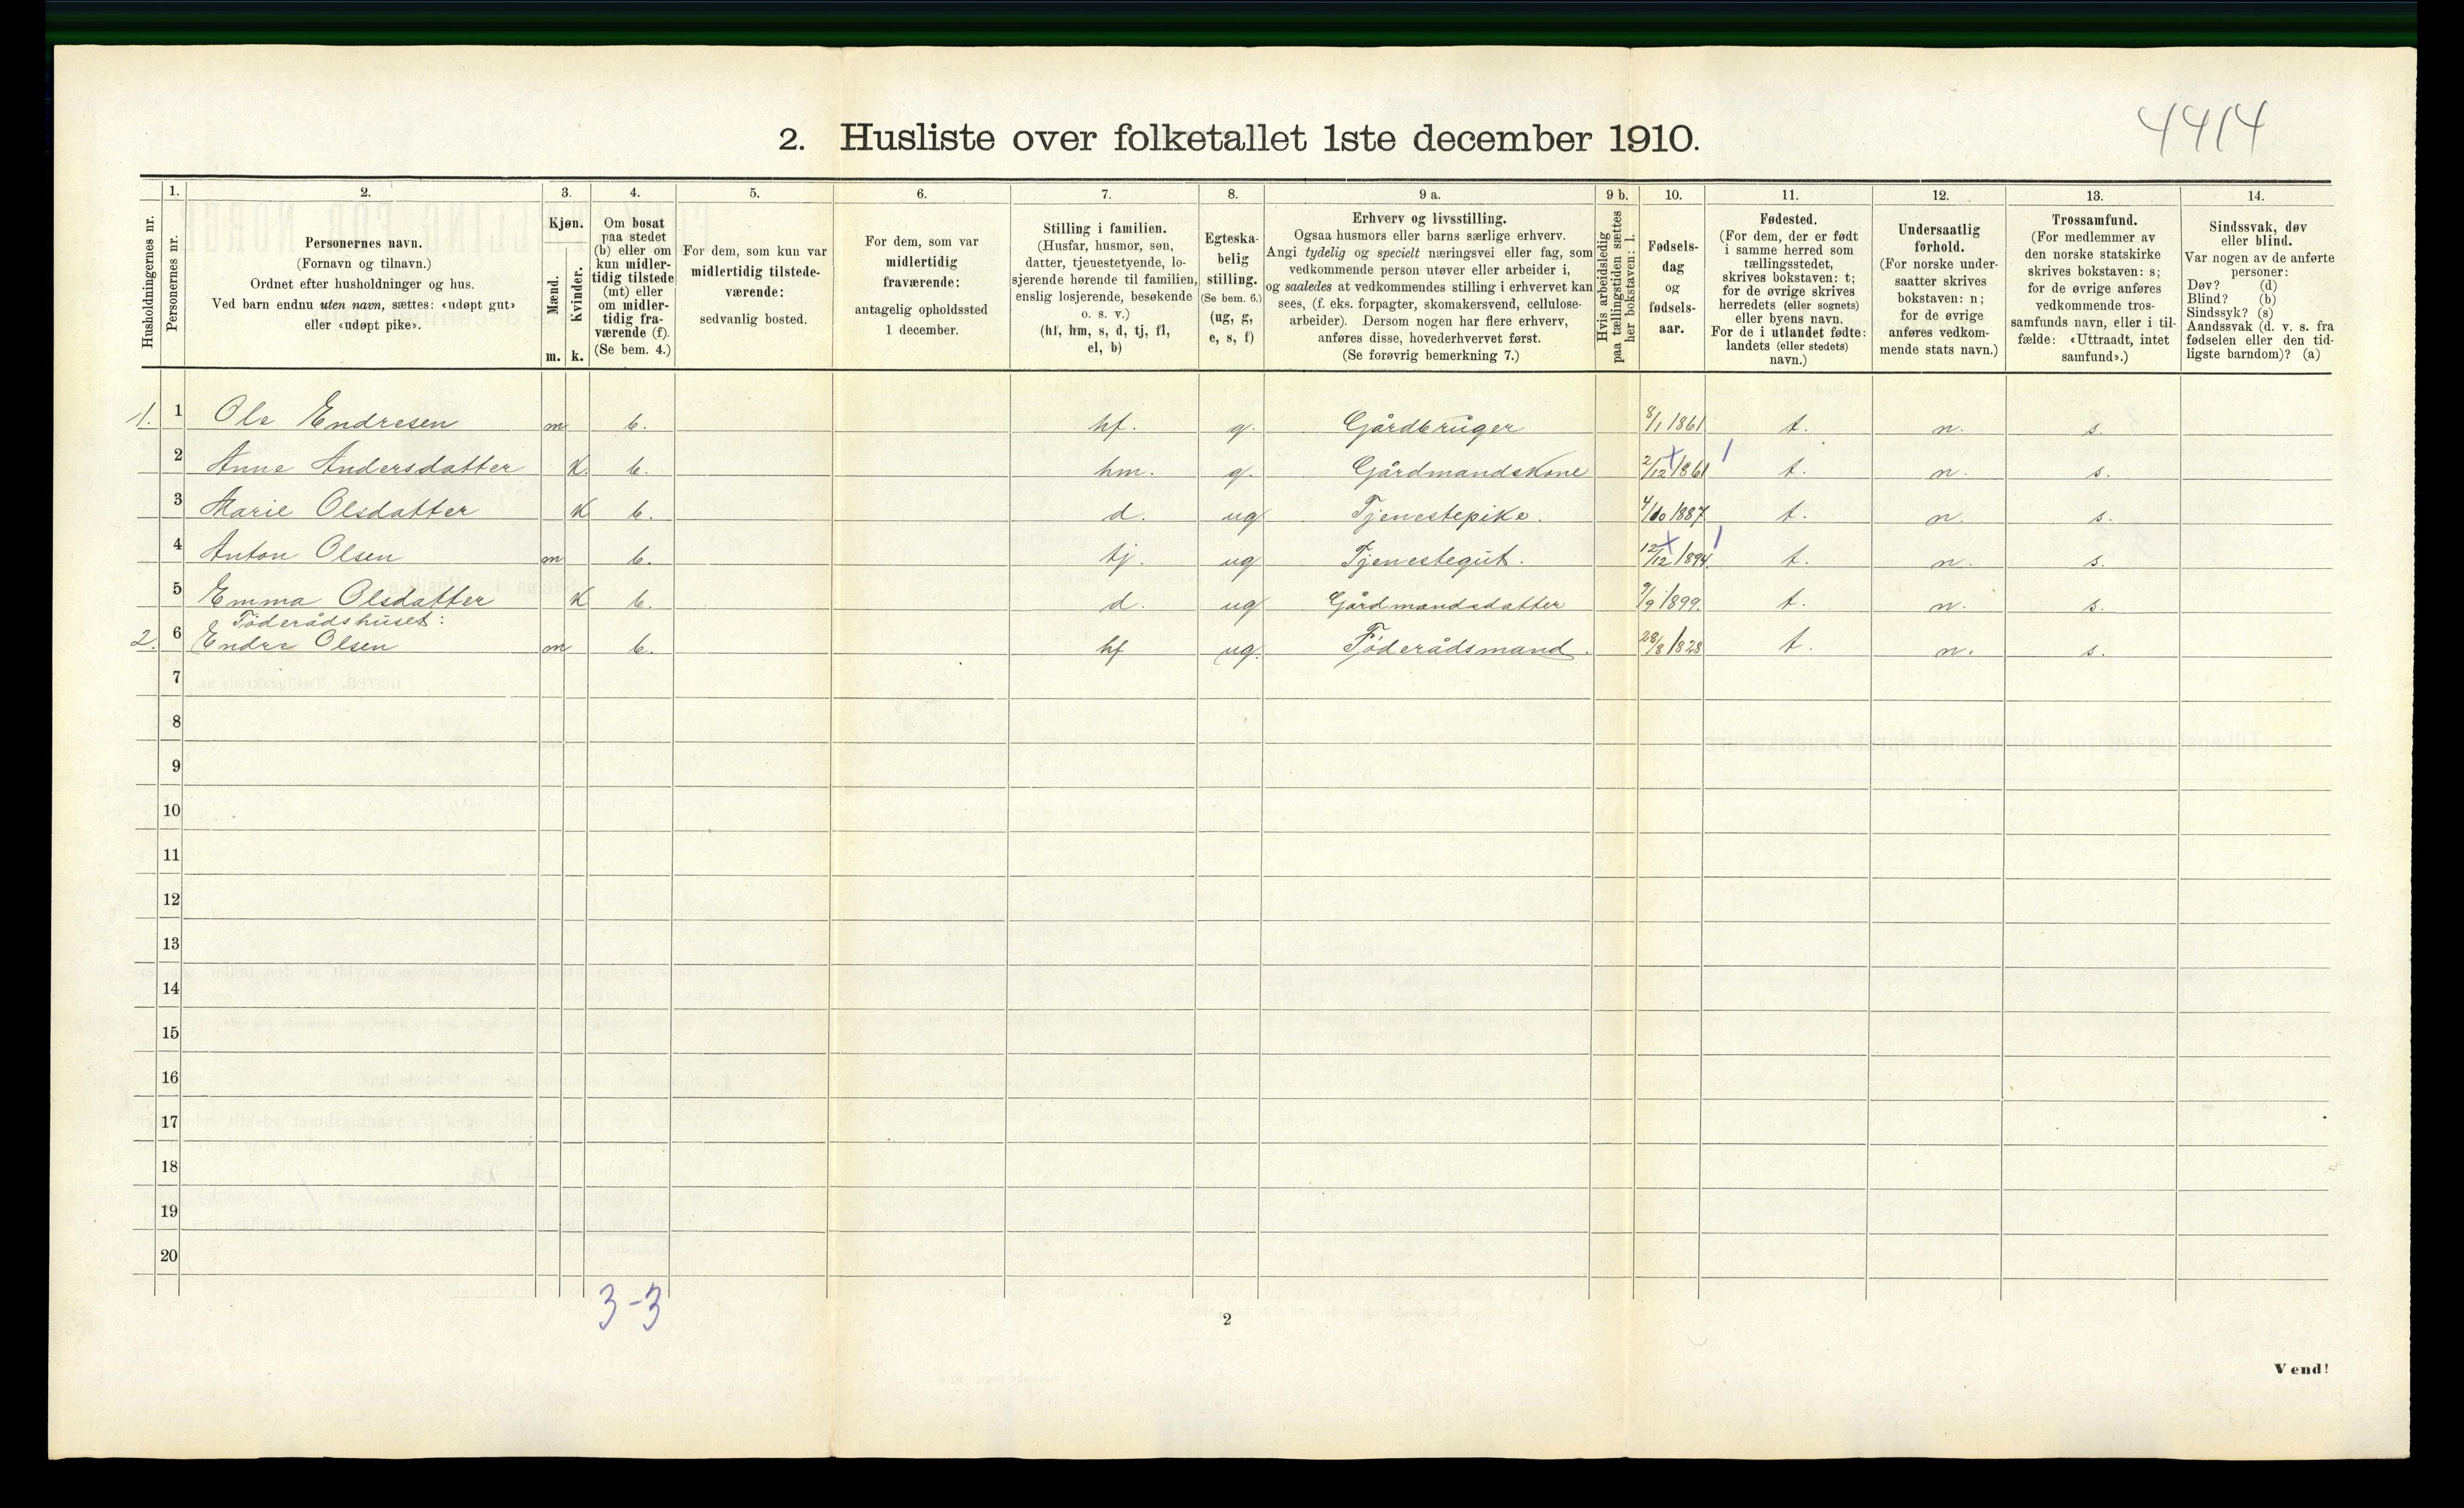 4414
2. Husliste over folketallet 1ste december 1910.
Husholdningernes nr.
1.
Personernes nr.
2.
Personernes navn.
(Fornavn og tilnavn.)
Ordnet efter husholdninger og hus.
Ved barn endnu uten navn, sættes: «udøpt gut»
eller «udøpt pike».
3.
Kjøn.
Mænd.
Kvinder.
m. k.
4.
Om bosat
paa stedet
(b) eller om
kun midler-
tidig tilstede
(mt) eller
om midler-
tidig fra-
værende (f).
(Se bem. 4.)
5.
For dem, som kun var
midlertidig tilstede-
værende:
sedvanlig bosted.
6.
For dem, som var
midlertidig
fraværende:
antagelig opholdssted
1 december.
7.
Stilling i familien.
(Husfar, husmor, søn,
datter, tjenestetyende, lo-
sjerende hørende til familien,
enslig losjerende, besøkende
o. s. v.)
(hf, hm, s, d, tj, fl,
el, b)
8.
Egteska-
belig
stilling.
(Se bem. 6.)
(ug, g,
e, s, f)
9 a.
Erhverv og livsstilling.
Ogsaa husmors eller barns særlige erhverv.
Angi tydelig og specielt næringsvei eller fag, som
vedkommende person utøver eller arbeider i,
og saaledes at vedkommendes stilling i erhvervet kan
sees, (f. eks. forpagter, skomakersvend, cellulose-
arbeider). Dersom nogen har flere erhverv,
anføres disse, hovederhvervet først.
(Se forøvrig bemerkning 7.)
9 b.
Hvis arbeidsledig
paa tællingstiden sættes
her bokstaven: l.
10.
Fødsels-
dag
og
fødsels-
aar.
11.
Fødested.
(For dem, der er født
i samme herred som
tællingsstedet,
skrives bokstaven: t;
for de øvrige skrives
herredets (eller sognets)
eller byens navn.
For de i utlandet fødte:
landets (eller stedets)
navn.)
12.
Undersaatlig
forhold.
(For norske under-
saatter skrives
bokstaven: n;
for de øvrige
anføres vedkom-
mende stats navn.)
13.
Trossamfund.
(For medlemmer av
den norske statskirke
skrives bokstaven: s;
for de øvrige anføres
vedkommende tros-
samfunds navn, eller i til-
fælde: «Uttraadt, intet
samfund».)
14.
Sindssvak, døv
eller blind.
Var nogen av de anførte
personer:
Døv? (d)
Blind? (b)
Sindssyk? (s)
Aandssvak (d. v. s. fra
fødselen eller den tid-
ligste barndom)? (a)
1. 1 Ole Endresen m b. hf. g. Gårdbruger 8/1 1861 t. n. s.
2 Anne Andersdatter K. b. hm. g. Gårdmandskone 2/12 1861 t. n. s.
3 Marie Olsdatter K b. d. ug Tjenestepike. 4/10 1887 t. n. s.
4 Anton Olsen m b. tj. ug Tjenestegut. 12/12 1894. t. n. s.
5 Emma Olsdatter K b. d. ug Gårdmandsdatter 9/9 1899. t. n. s.
Föderådshuset:
2. 6 Endre Olsen m b. hf ug. Föderådsmand. 28/8 1828 t. n. s.
7
8
9
10
11
12
13
14
15
16
17
18
19
20
3-3
2
Vend!